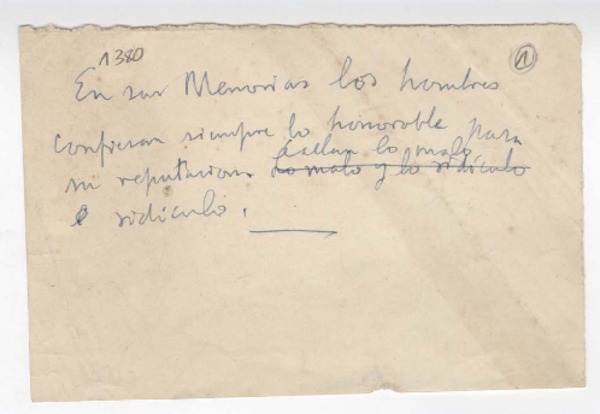 1380
1
En sus Memorias los hombres
confiesan siempre lo honorable para
callan lo malo
su reputacion. Lo malo y lo ridículo
e ridículo.